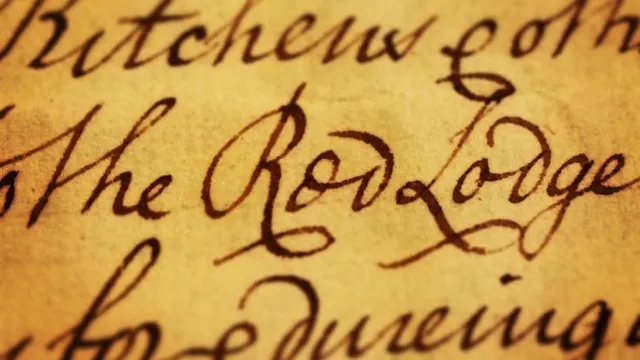 Kitchens & oth
the Red Lodge
for dureing